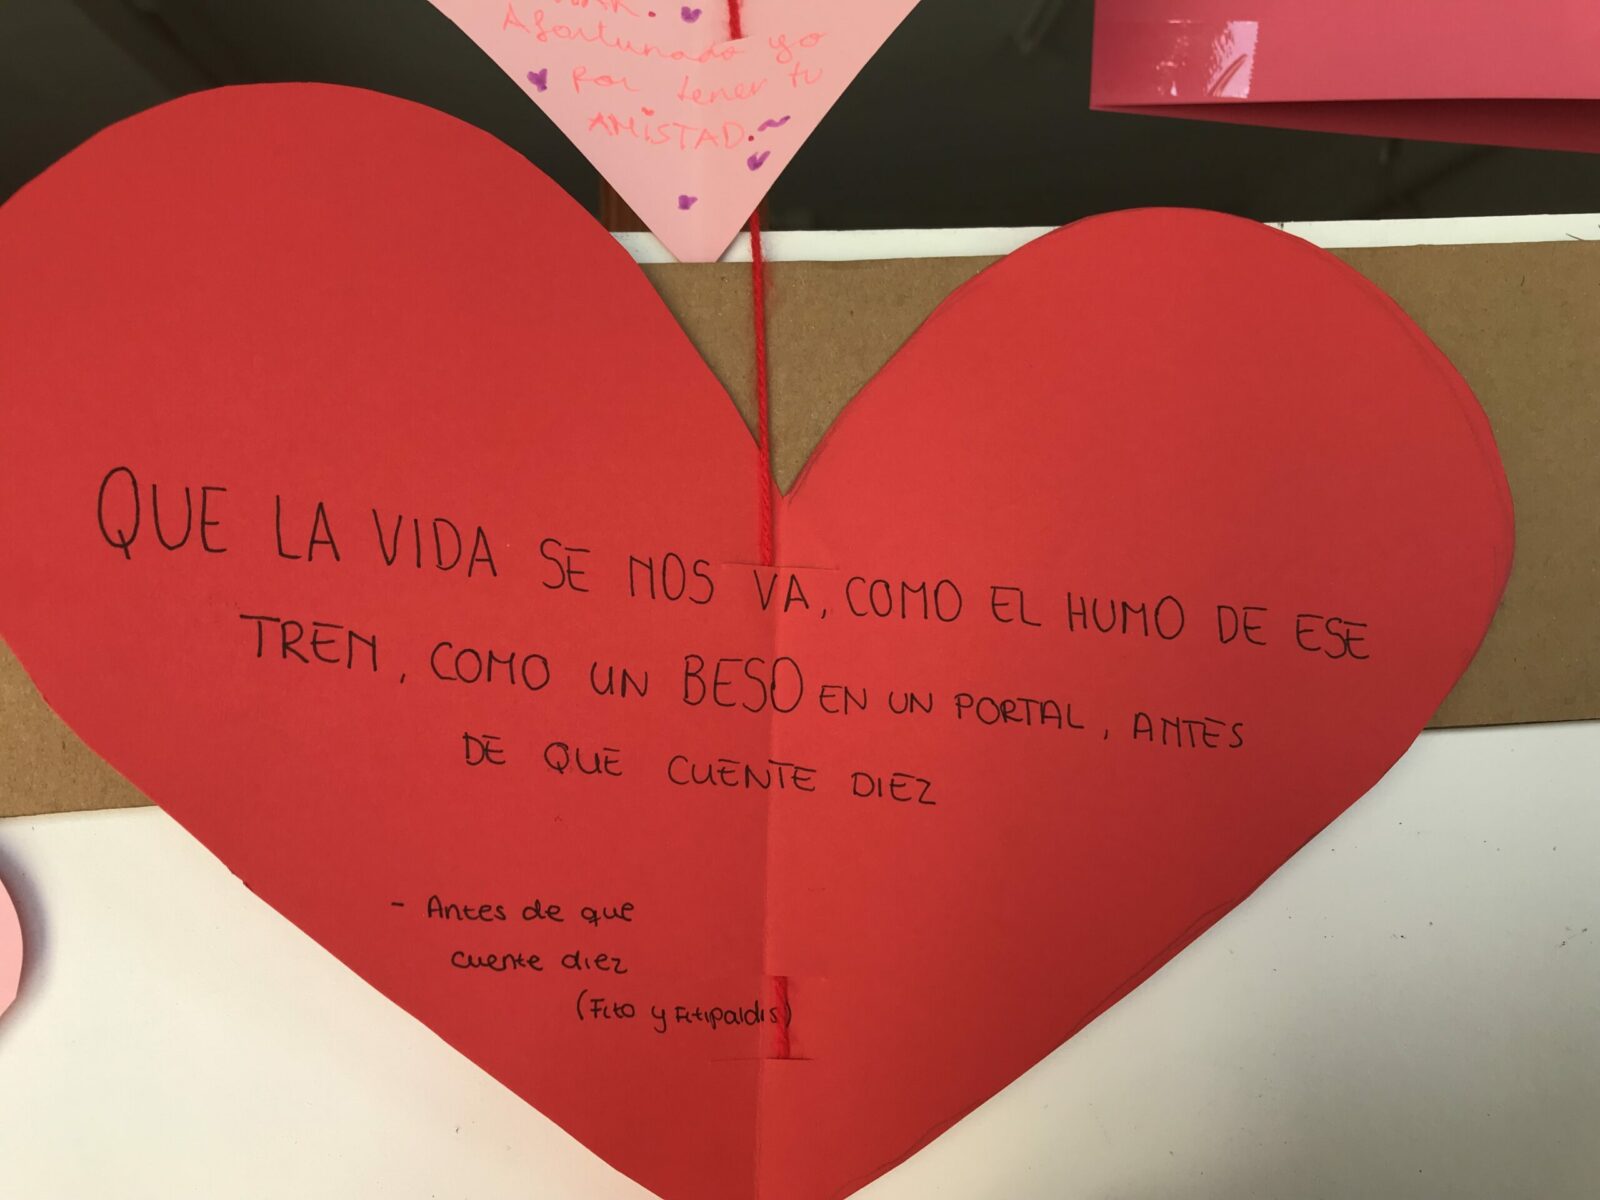 Afortunado yo
por tener tu
AMISTAD.
QUE LA VIDA SE NOS VA, COMO EL HUMO DE ESE
TREN, COMO UN BESO EN UN PORTAL, ANTES
DE QUE CUENTE DIEZ
- Antes de que
cuente diez
(Fito y Fitipaldis)